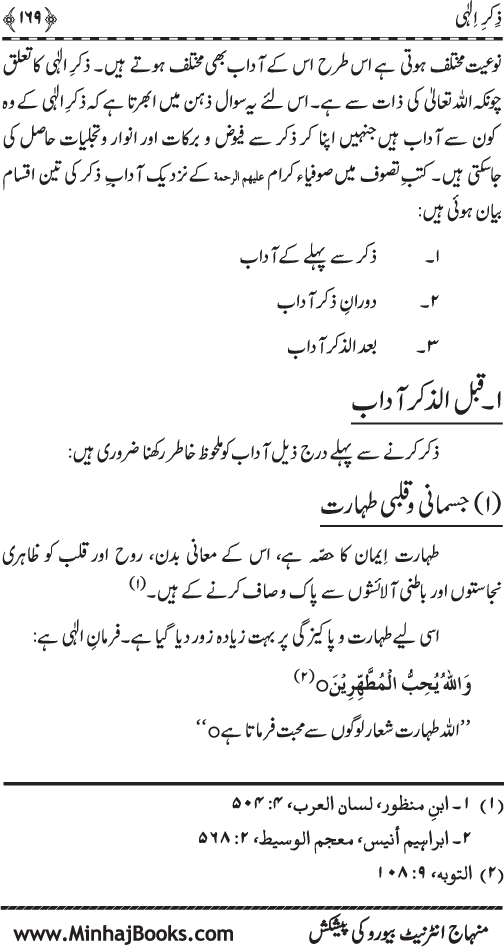 ذِکرِ اِلٰہی ﴿۱۶۹﴾
نوعیت مختلف ہوتی ہے اس طرح اس کے آداب بھی مختلف ہوتے ہیں۔ ذکرِ الٰہی کا تعلق
چونکہ اللہ تعالیٰ کی ذات سے ہے۔ اس لئے یہ سوال ذہن میں ابھرتا ہے کہ ذکرِ الٰہی کے وہ
کون سے آداب ہیں جنہیں اپنا کر ذکر سے فیوض و برکات اور انوار و تجلیات حاصل کی
جاسکتی ہیں۔ کتبِ تصوف میں صوفیاء کرام علیہم الرحمۃ کے نزدیک آدابِ ذکر کی تین اقسام
بیان ہوئی ہیں:
۱۔ ذکر سے پہلے کے آداب
۲۔ دورانِ ذکر آداب
۳۔ بعد الذکر آداب
۱۔ قبل الذکر آداب
ذکر کرنے سے پہلے درج ذیل آداب کو ملحوظ خاطر رکھنا ضروری ہیں:
(۱) جسمانی و قلبی طہارت
طہارت اِیمان کا حصّہ ہے، اس کے معانی بدن، روح اور قلب کو ظاہری
نجاستوں اور باطنی آلائشوں سے پاک و صاف کرنے کے ہیں۔(۱)
اسی لیے طہارت و پاکیزگی پر بہت زیادہ زور دیا گیا ہے۔ فرمانِ الٰہی ہے:
وَاللهُ يُحِبُّ الْمُطَّهِّرِيْنَ○(۲)
’’اللہ طہارت شعار لوگوں سے محبت فرماتا ہے○‘‘
(۱) ۱۔ ابنِ منظور، لسان العرب، ۴: ۵۰۴
۲۔ ابراہیم أنیس، معجم الوسیط، ۲: ۵۶۸
(۲) التوبہ، ۹: ۱۰۸
منہاج انٹرنیٹ بیورو کی پیشکش www.MinhajBooks.com